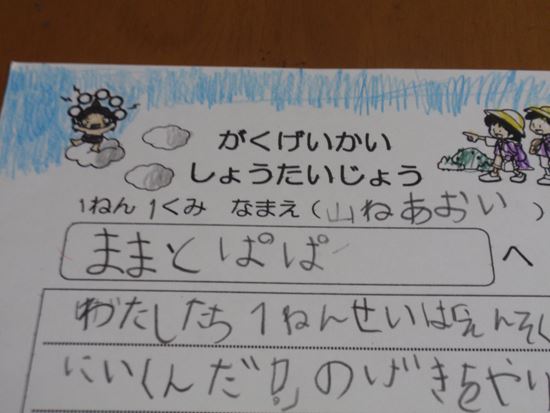 がくげいかい
しょうたいじょう
1ねん 1くみ なまえ(山ねあおい)
ままとぱぱ へ
わたしたち1ねんせいは「えんそく
にいくんだ!」のげきをやり